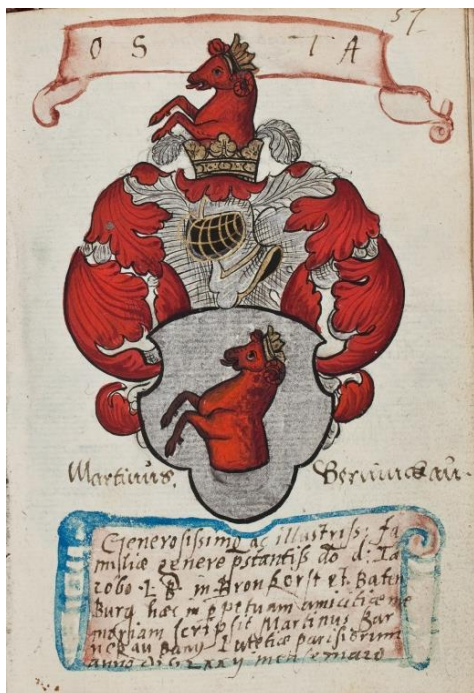 57
O S T A
Martinus.
Generosissimo ac illustriss: fa
miliæ genere pstantiss do d: Ia
cobo in Bronkorst et Baten
Burg hæc in ppetuam amicitiæ me
moriam scripsit Martinus Bar
Lutetiæ parisiorum
anno